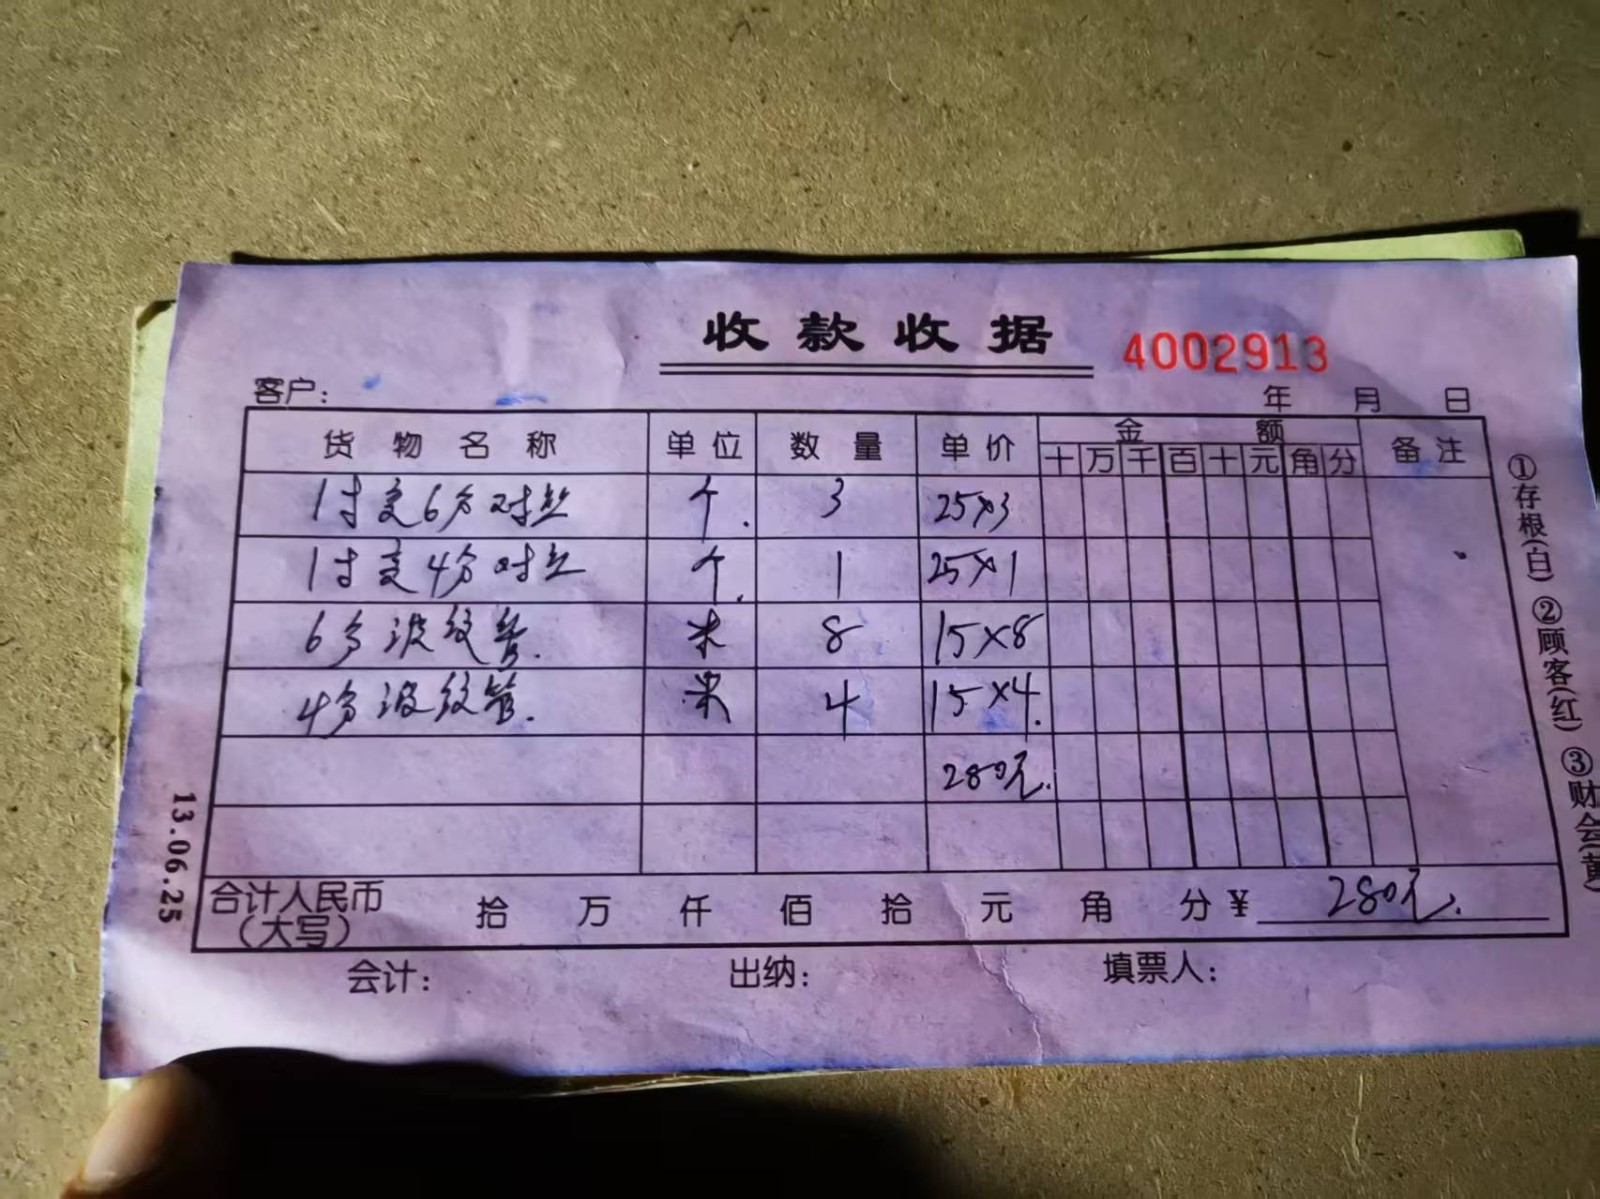 收款收据 4002913
客户: 年 月 日
货物名称 单位 数量 单价 金额 备注
十 万 千 百 十 元 角 分
1寸变6分对丝 个. 3 25×3
1寸变4分对丝 个. 1 25×1
6分波纹管. 米 8 15×8
4分波纹管. 米 4 15×4.
280元.
合计人民币(大写) 拾 万 仟 佰 拾 元 角 分 ¥ 280元.
会计: 出纳: 填票人:
①存根(白) ②顾客(红) ③财会(黄
13.06.25